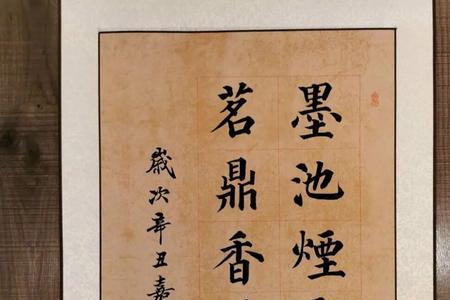 墨池煙
茗鼎香
歲次辛丑嘉